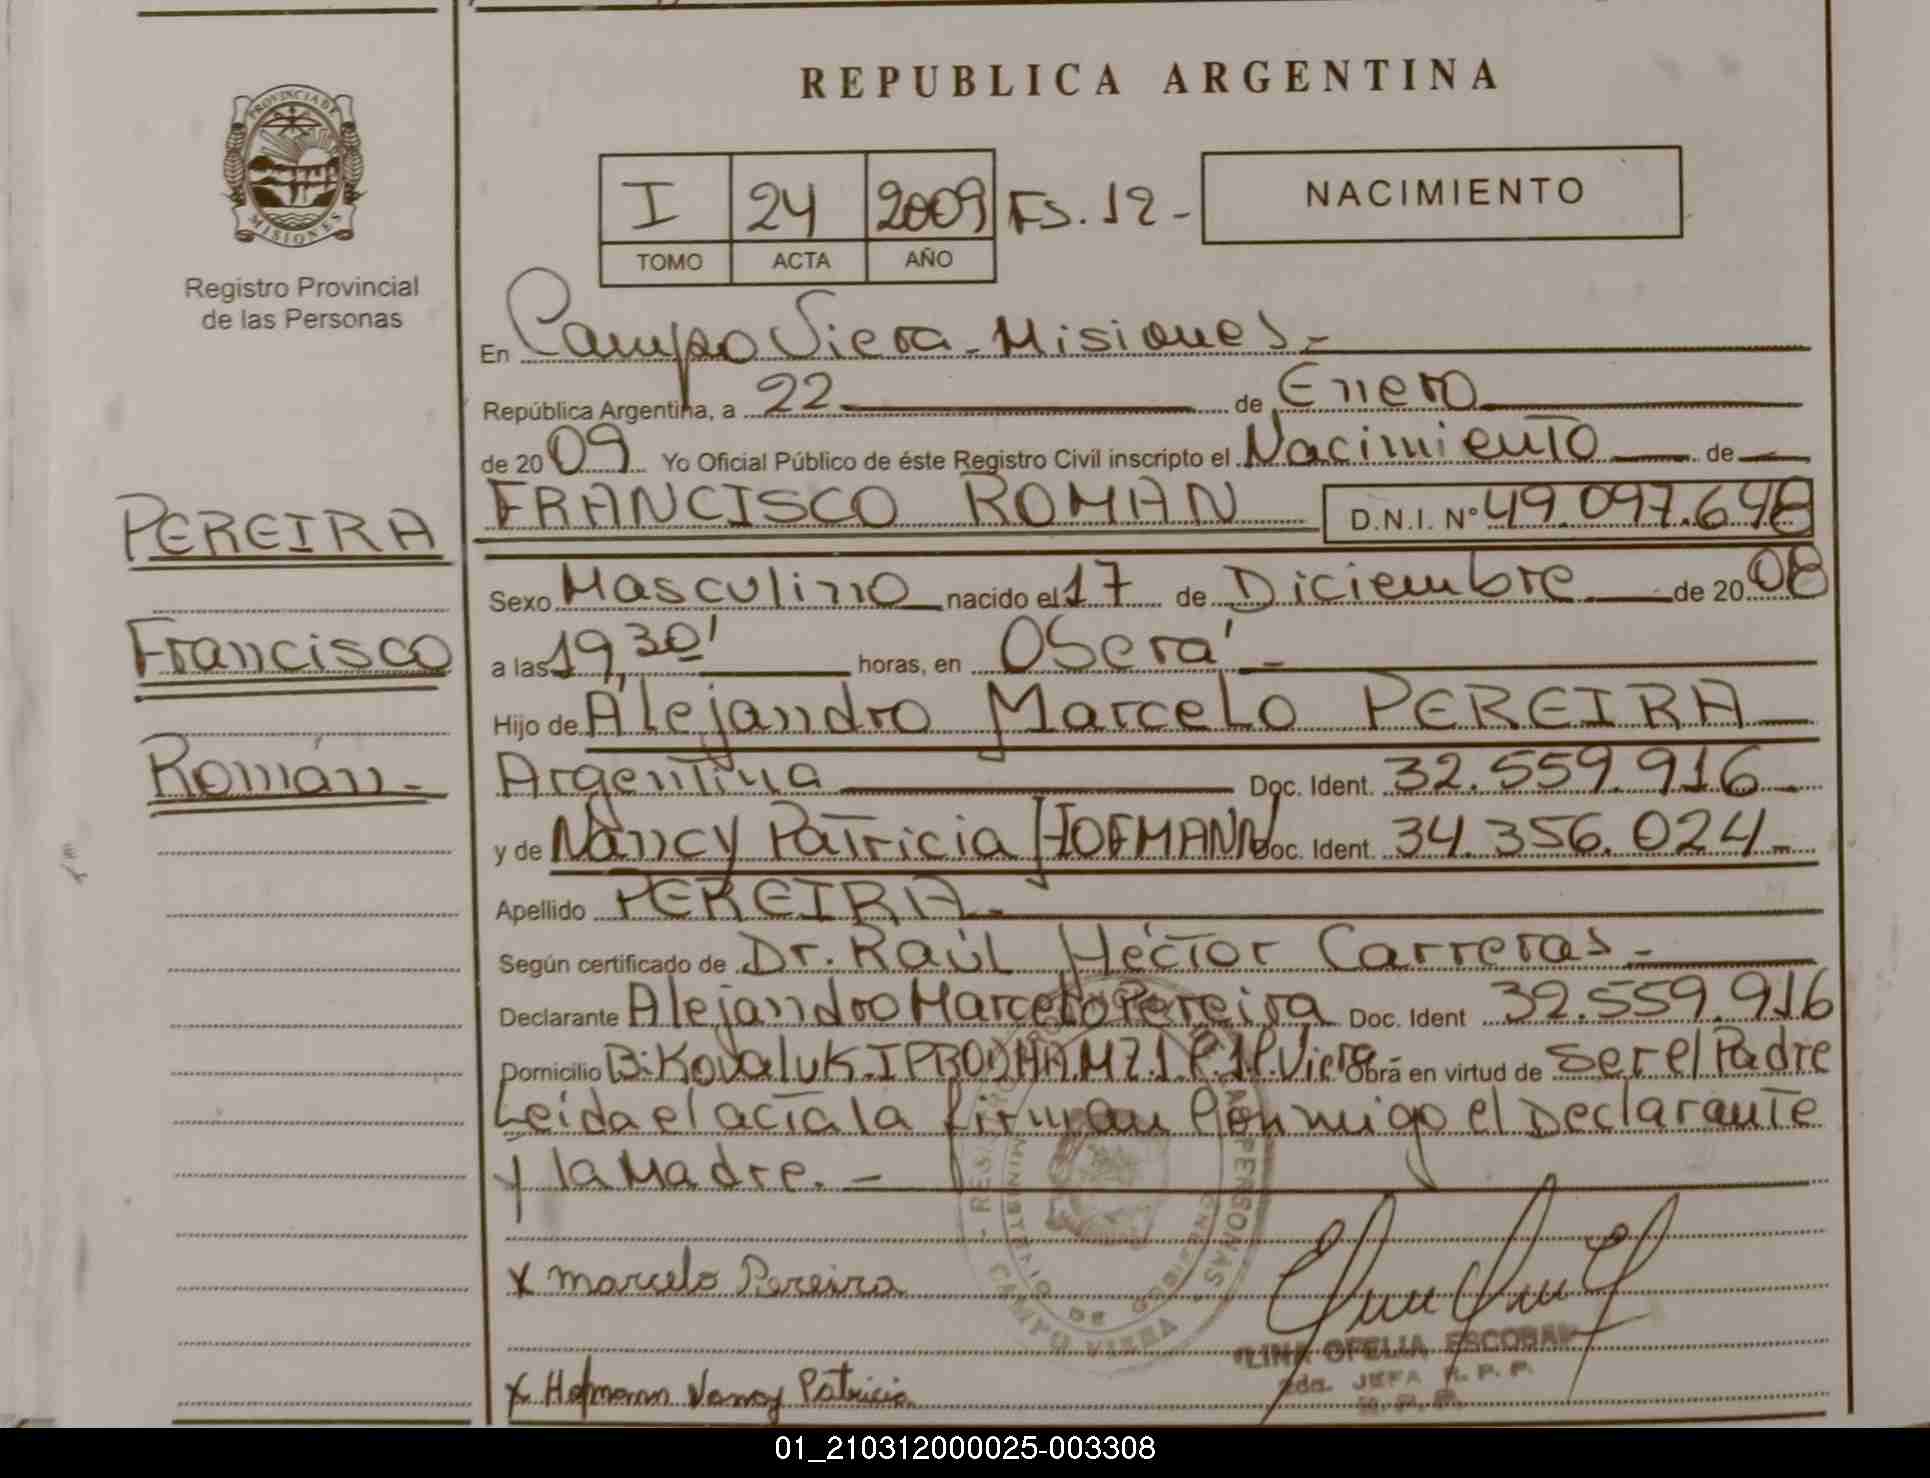 REPUBLICA ARGENTINA
PROVINCIA DE
MISIONES
Registro Provincial
de las Personas
I 24 2009 Fs. 12-
TOMO ACTA AÑO
NACIMIENTO
En Campo Viera - Misiones -
República Argentina, a 22 de Enero
de 2009 Yo Oficial Público de éste Registro Civil inscripto el Nacimiento de
FRANCISCO ROMAN D.N.I. Nº 49.097.648
PEREIRA
Francisco
Román.-
Sexo Masculino nacido el 17 de Diciembre de 2008
a las 19,30' horas, en Oberá -
Hijo de Alejandro Marcelo PEREIRA
Argentina Doc. Ident. 32.559.916 -
y de Nancy Patricia HOFMANN Doc. Ident. 34.356.024 -
Apellido PEREIRA -
Según certificado de Dr. Raúl Héctor Carreras -
Declarante Alejandro Marcelo Pereira Doc. Ident 32.559.916
Domicilio B: Kovaluk. IPRODHA. MZ.1 P.1 C. Viera Obrá en virtud de ser el Padre
Leída el acta la firman Conmigo el Declarante
y la Madre. -
x Marcelo Pereira
x Hofmann Nancy Patricia
CAMPO VIERA
MINISTERIO DE GOBIERNO
PERSONAS
OFELIA ESCOBAR
2da. JEFA R. P. P.
01_210312000025-003308